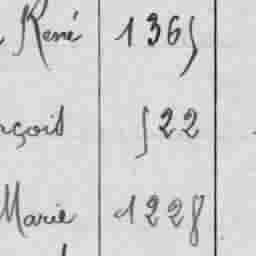 René 1365
nçois 522
Marie 1228